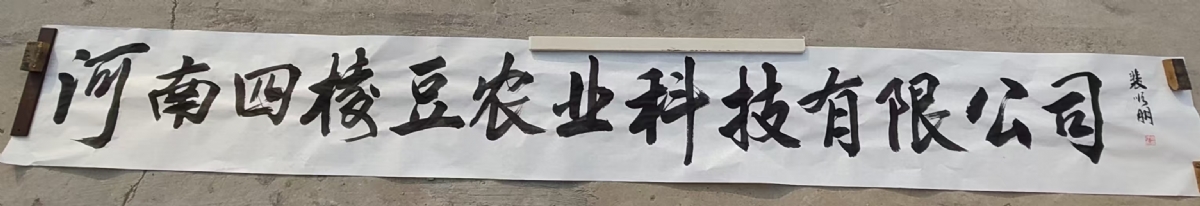 河南四棱豆农业科技有限公司